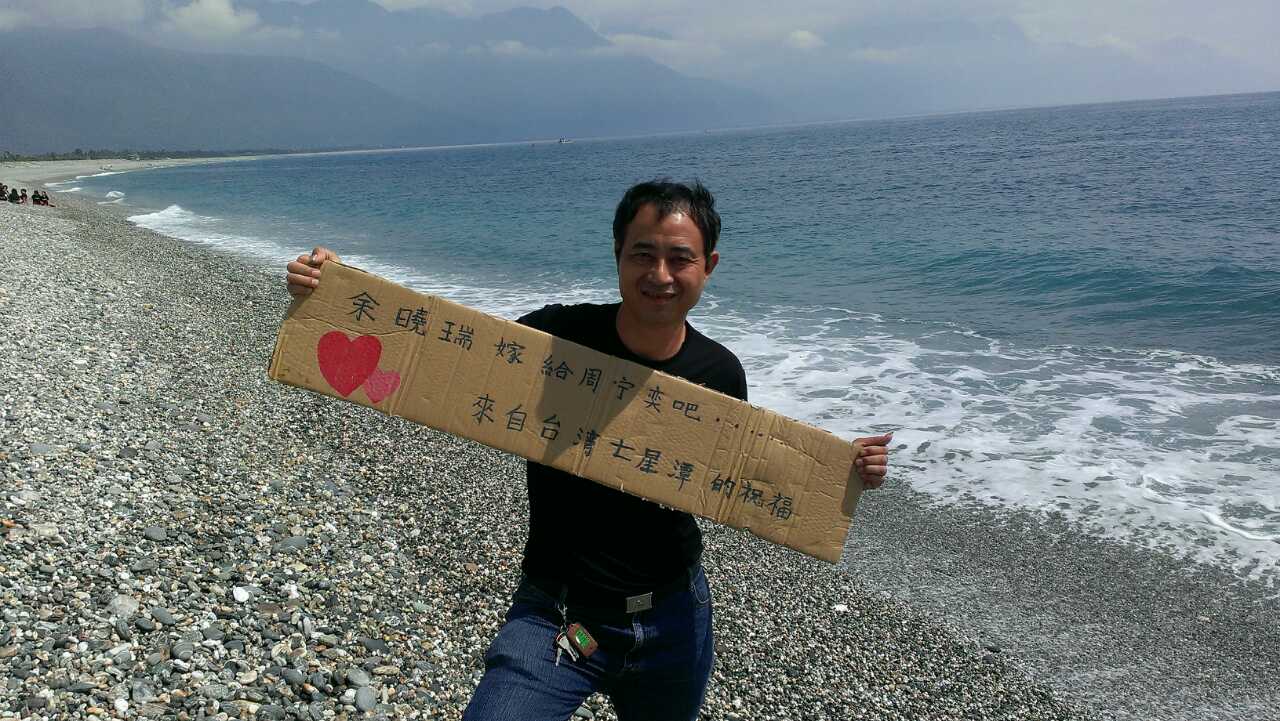 余曉瑞 嫁給周宁奕吧......
來自台灣七星潭的祝福